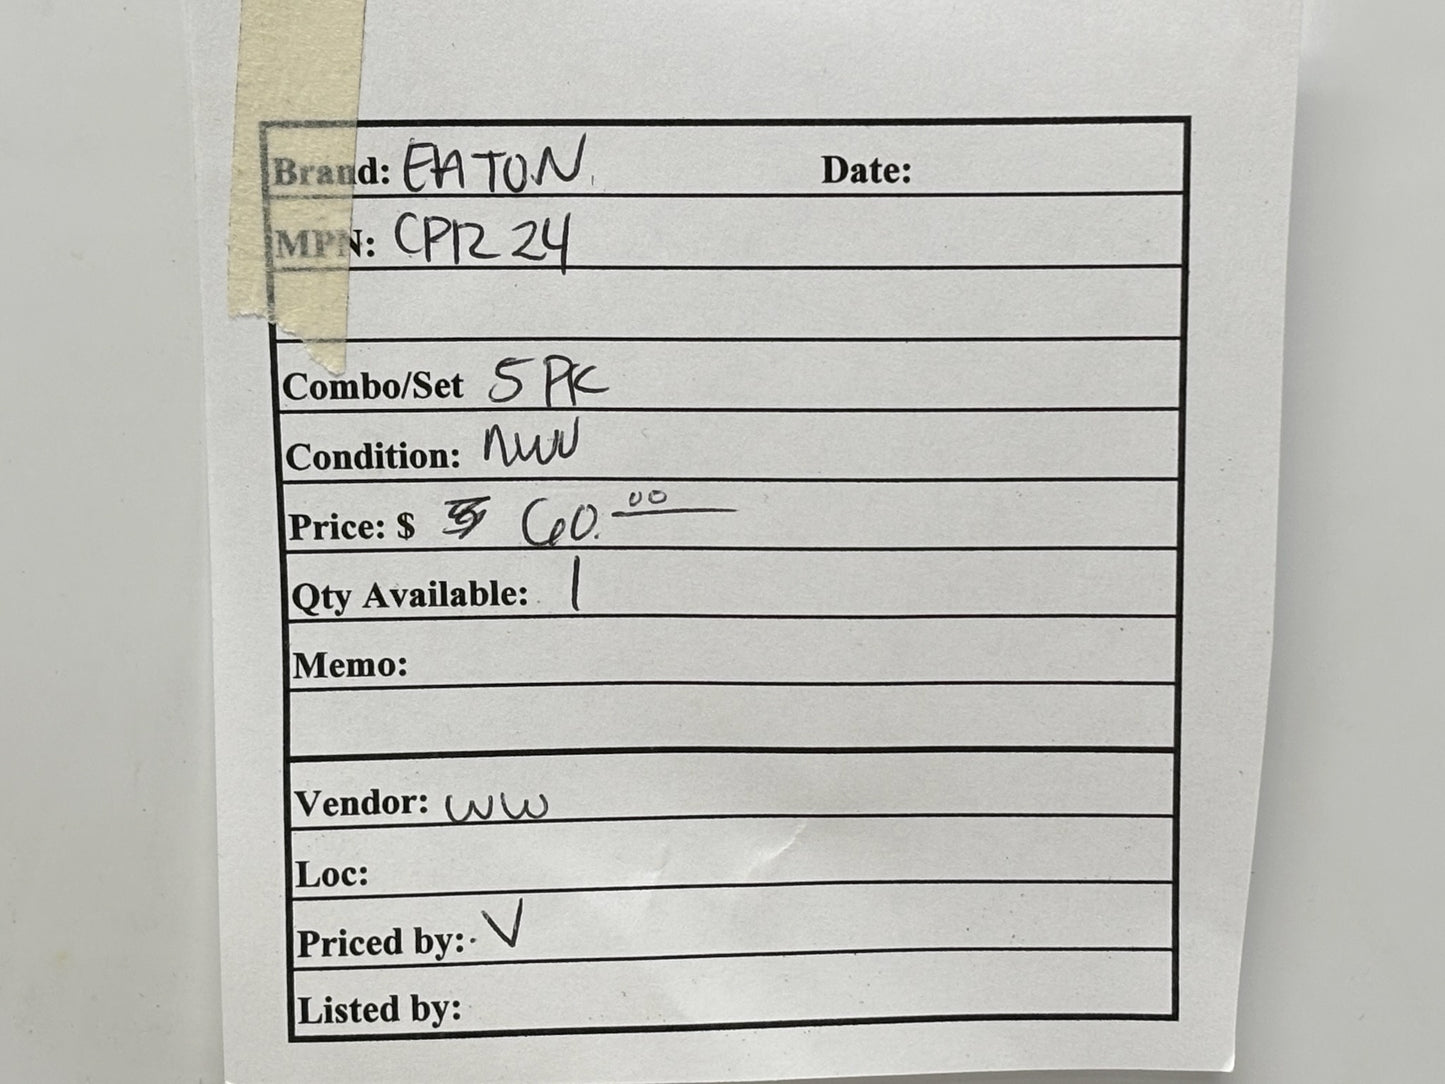 Brand: EATON Date:
MPN: CPR 24
Combo/Set 5 PK
Condition: NW
Price: $ 60.00
Qty Available: 1
Memo:
Vendor: WW
Loc:
Priced by: V
Listed by: